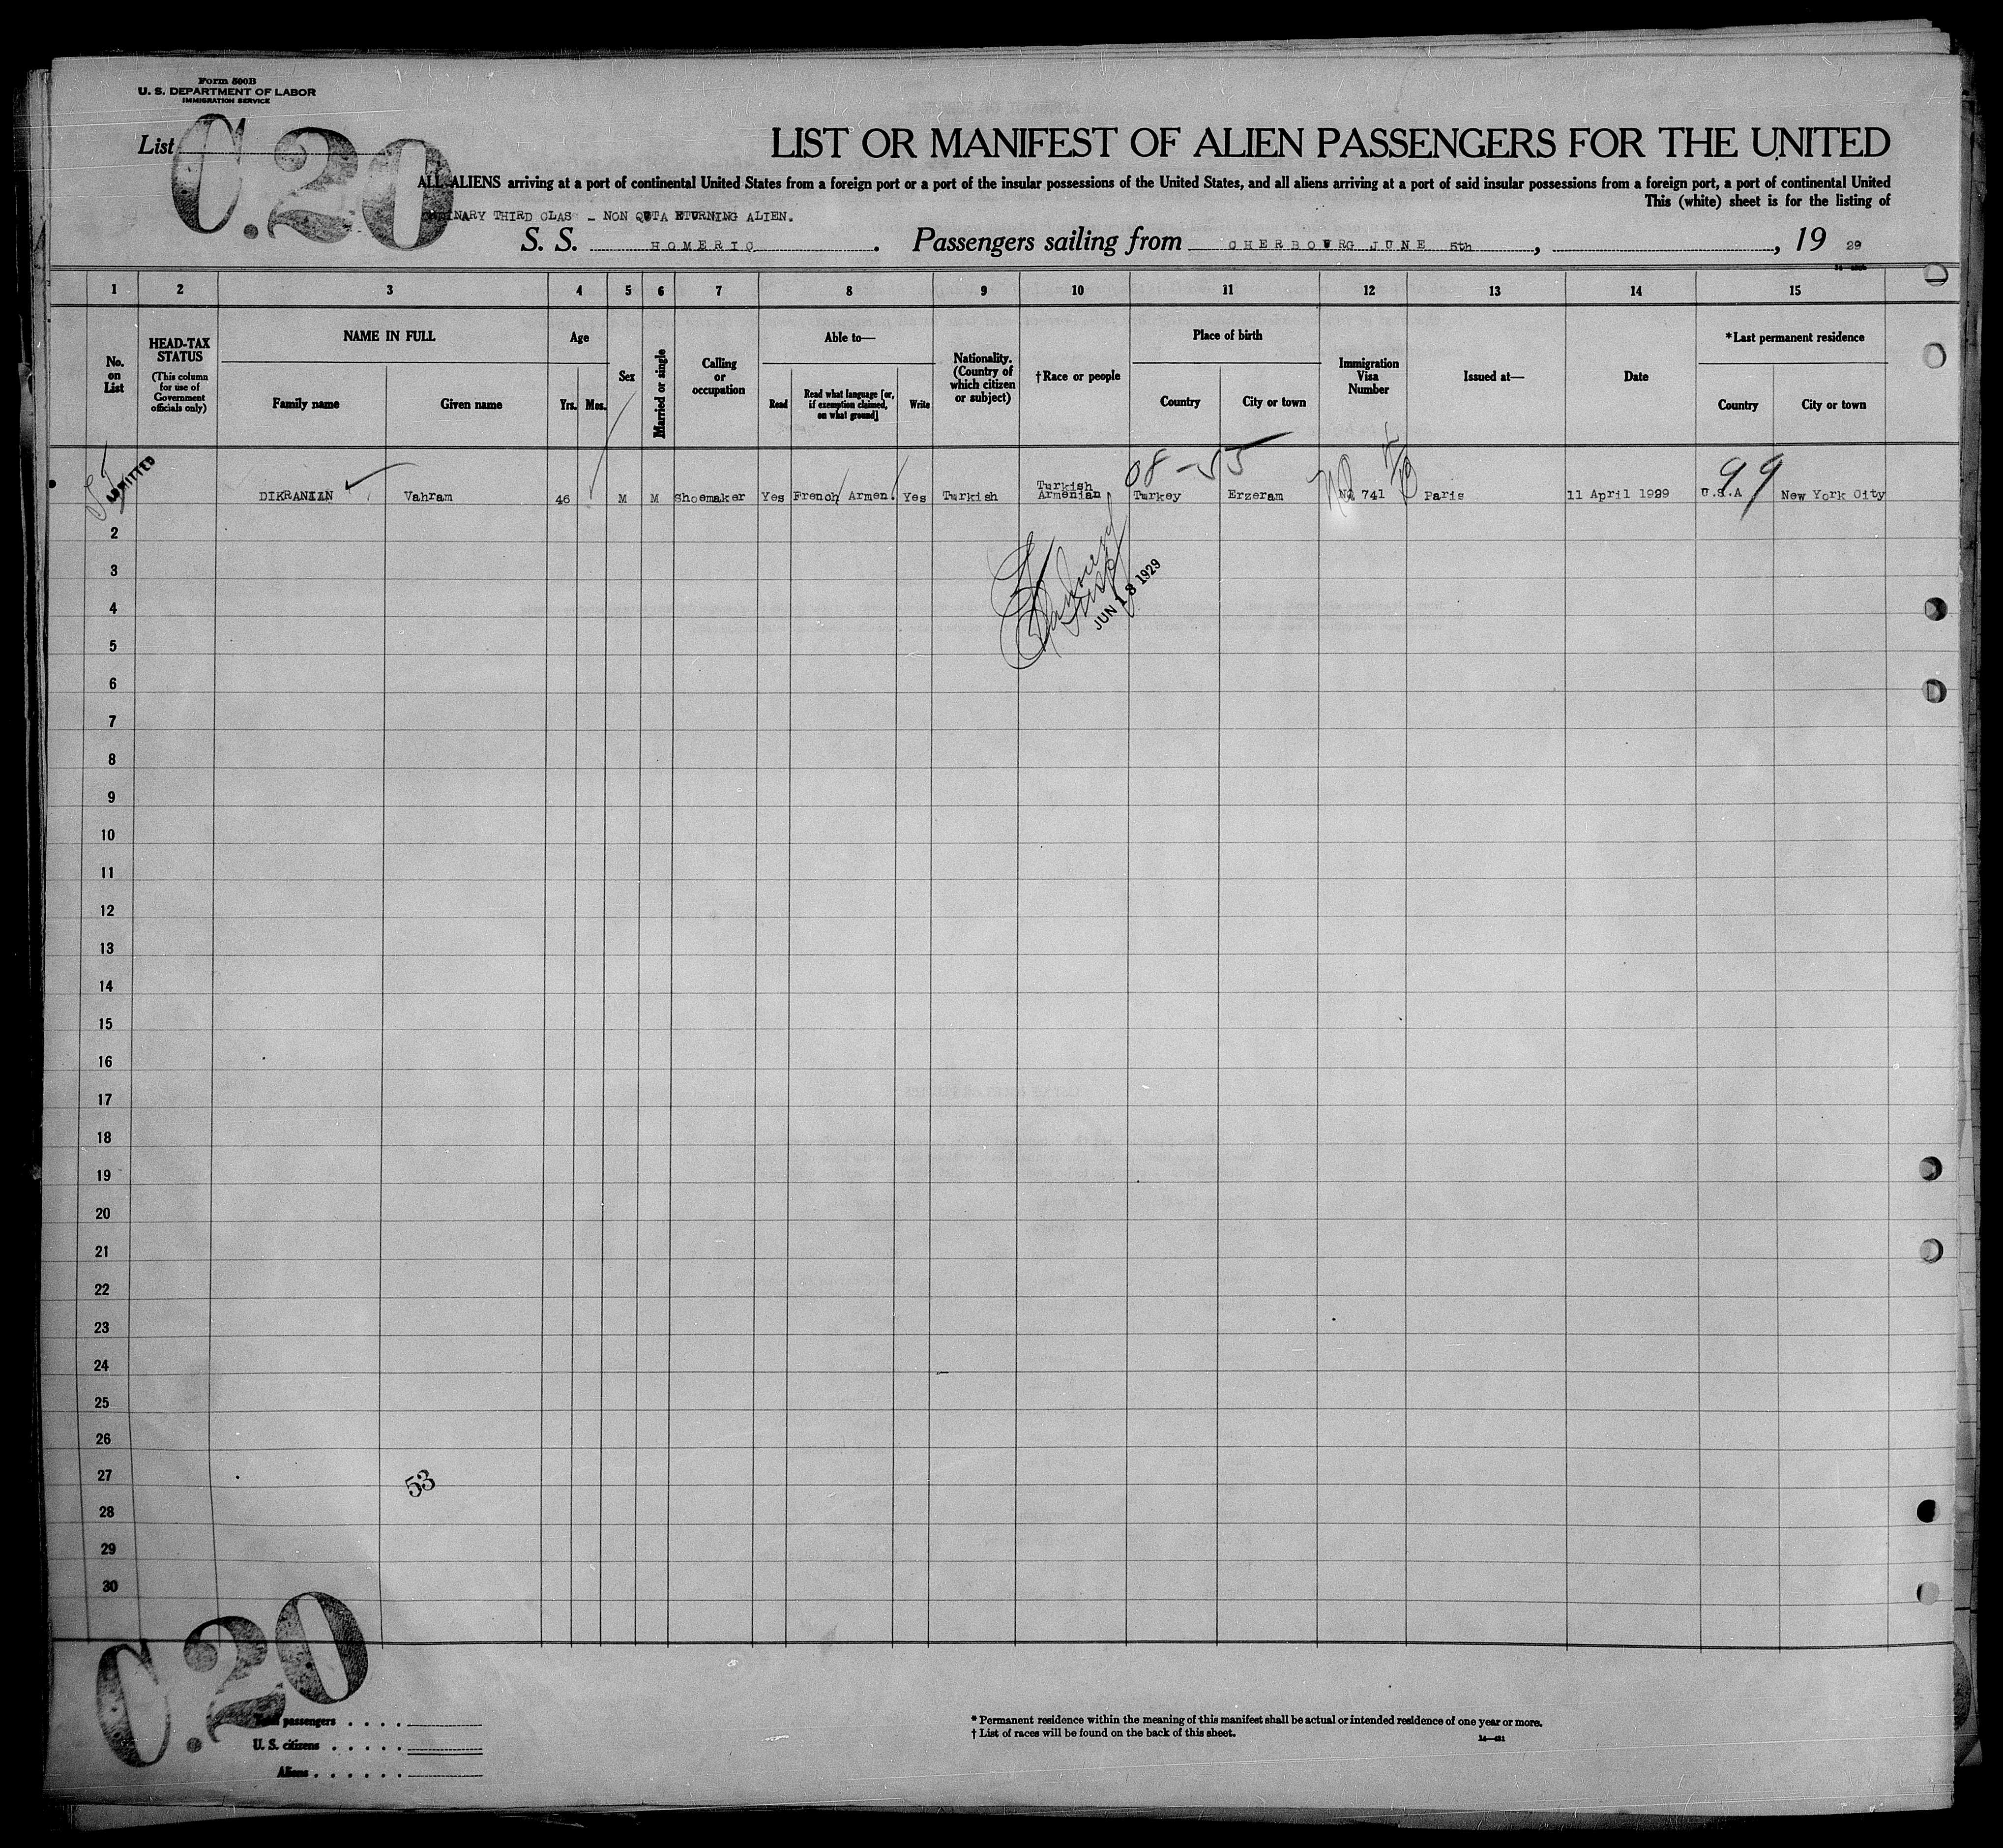 Form 500B
U. S. DEPARTMENT OF LABOR
IMMIGRATION SERVICE
List C.20
LIST OR MANIFEST OF ALIEN PASSENGERS FOR THE UNITED
ALL ALIENS arriving at a port of continental United States from a foreign port or a port of the insular possessions of the United States, and all aliens arriving at a port of said insular possessions from a foreign port, a port of continental United
This (white) sheet is for the listing of
THIRD CLAS - NON QUTA ETURNING ALIEN.
S. S. HOMERIC. Passengers sailing from CHERBOURG JUNE 5th, , 19 29
1 2 3 4 5 6 7 8 9 10 11 12 13 14 15
No. on List
HEAD-TAX STATUS (This column for use of Government officials only)
NAME IN FULL
Family name Given name
Age
Yrs. Mos.
Sex
Married or single
Calling or occupation
Able to—
Read
Read what language [or, if exemption claimed, on what ground]
Write
Nationality. (Country of which citizen or subject)
†Race or people
Place of birth
Country City or town
Immigration Visa Number
Issued at—
Date
*Last permanent residence
Country City or town
ADMITTED
08-55
99
Turkish
DIKRANIAN Vahram 46 M M Shoemaker Yes French Armen. Yes Turkish Armenian Turkey Erzeram No 741 Paris 11 April 1929 U.S.A New York City
JUN 18 1929
2
3
4
5
6
7
8
9
10
11
12
13
14
15
16
17
18
19
20
21
22
23
24
25
26
27
53
28
29
30
C.20
passengers . . . .
U. S. citizens . . . . .
Aliens . . . . . .
* Permanent residence within the meaning of this manifest shall be actual or intended residence of one year or more.
† List of races will be found on the back of this sheet.